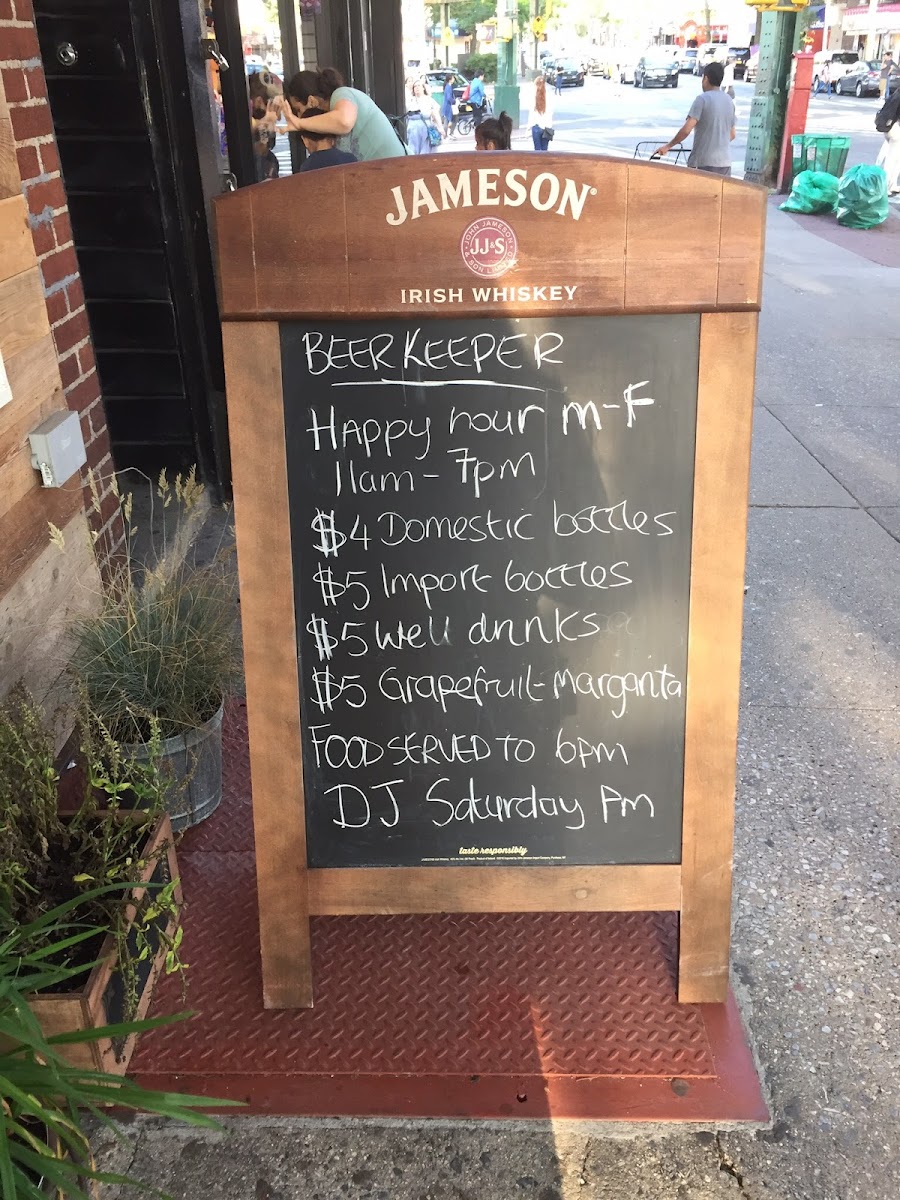 JAMESON®
JOHN JAMESON
JJ&S
& SON LIMITED
IRISH WHISKEY
BEER KEEPER
Happy hour M-F
11am - 7pm
$4 Domestic bottles
$5 Import bottles
$5 well drinks
$5 Grapefruit-Margarita
FOOD SERVED TO 6pm
DJ Saturday Pm
taste responsibly